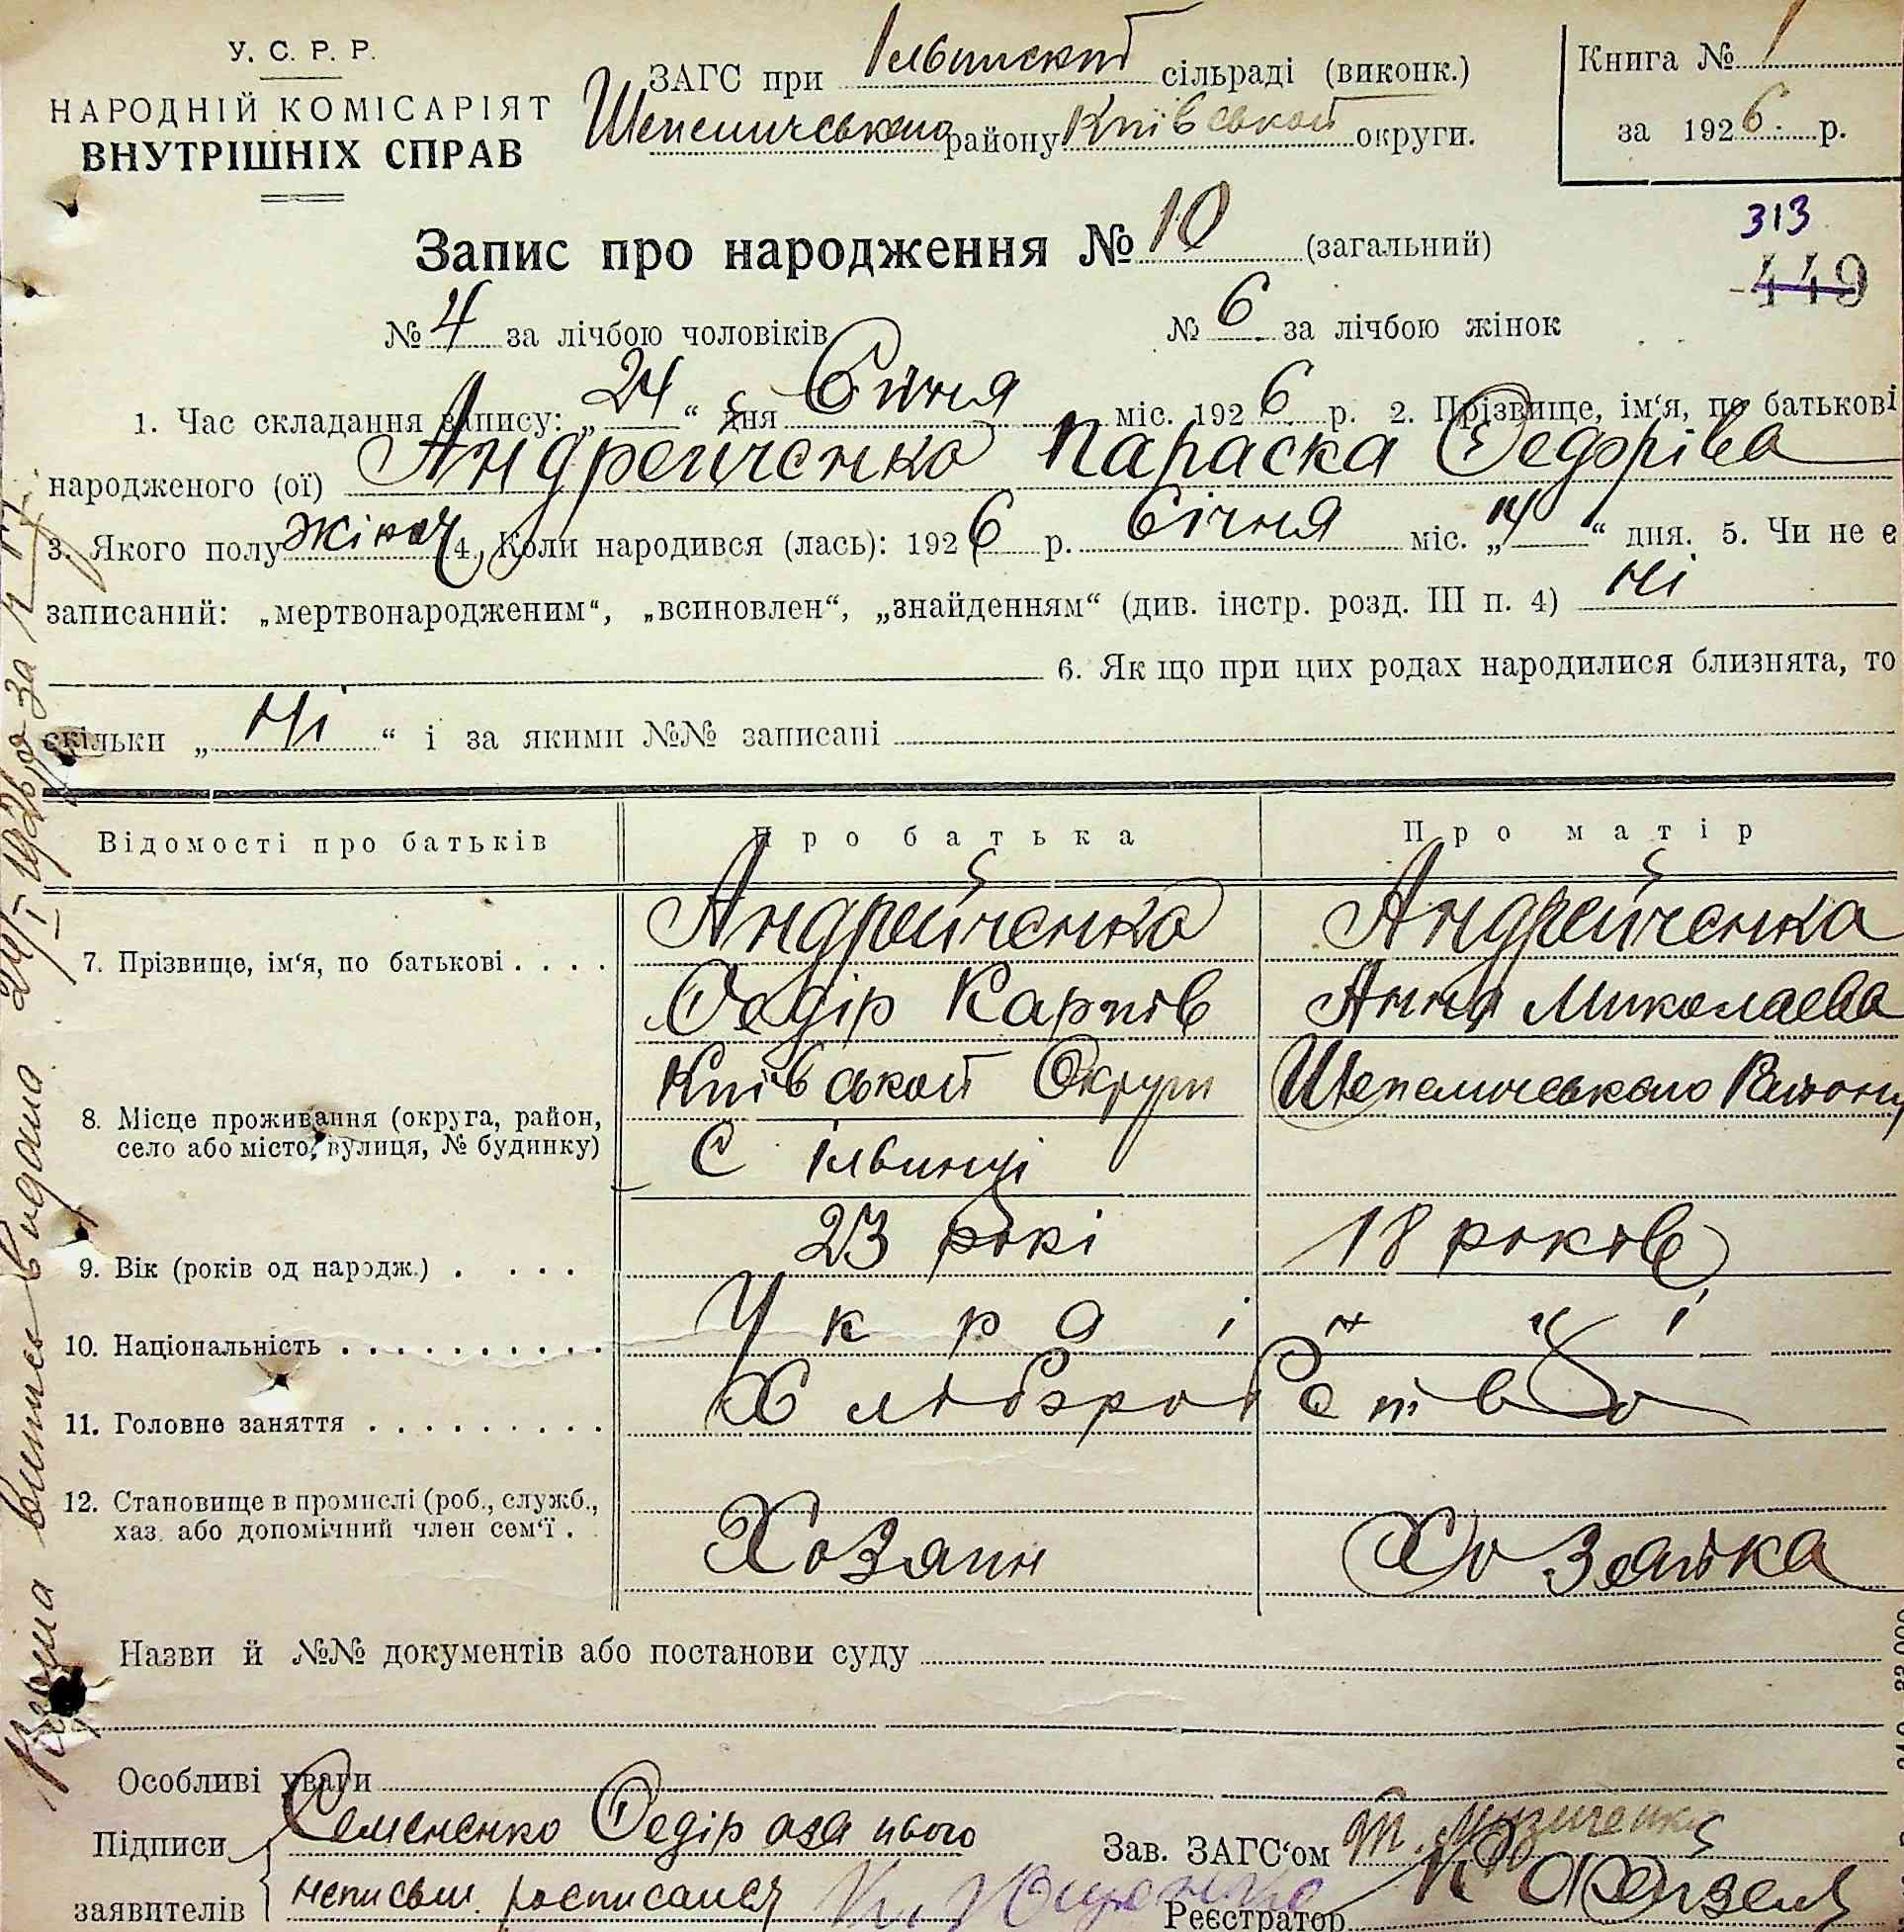 У. С. Р. Р.
НАРОДНІЙ КОМІСАРІЯТ
ВНУТРІШНІХ СПРАВ
ЗАГС при сільраді (виконк.)
Шепеличського району Київськой округи.
Книга № 1
за 1926 р.
313
449
Запис про народження № 10 (загальний)
№ 4 за лічбою чоловіків № 6 за лічбою жінок
1. Час складання запису: „24“ дня Січня міс. 1926 р. 2. Прізвище, ім‘я, по батькові
народженого (ої) Андрейченко Параска Федорівa
3. Якого полу жіноч 4. Коли народився (лась): 1926 р. Січня міс. „ “ дня. 5. Чи не є
записаний: „мертвонародженим“, „всиновлен“, „знайденням“ (див. інстр. розд. III п. 4) Ні
6. Як що при цих родах народилися близнята, то
скільки „Ні“ і за якими №№ записані
Відомості про батьків Про батька Про матір
7. Прізвище, ім‘я, по батькові . . . . Андрейченко Андрейченка
Федір Карпів Анна Миколаєва
8. Місце проживання (округа, район, село або місто, вулиця, № будинку) Київськой Округи Шепелическаго Району
С Ільинці
9. Вік (років од народж.) . . . . 23 рокі 18 років
10. Національність . . . . . . . . . . Украінці
11. Головне заняття . . . . . . . . . Хліборобство
12. Становище в промислі (роб., служб., хаз. або допомічний член сем‘ї . Хозаин Хозяйка
Назви й №№ документів або постанови суду
Особливі уваги
Підписи заявителів Семененко Федір аза нього
неписьм. росписался
Зав. ЗАГС‘ом
Реєстратор
виписъ видана 24/I 1926р за №